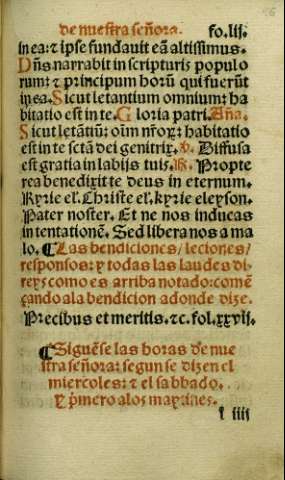 de nuestra señora. fo. lij.
in ea: ⁊ ipse fundauit eã altissimus.
Dñs narrabit in scripturis populo
rum: ⁊ principum horũ qui fuerũt
in ea. Sicut letantium omnium: ha
bitatio est in te. Gloria patri. Aña.
Sicut letãtiũ: oĩm nrõꝝ: habitatio
est in te sctã dei genitrix. ℣. Diffusa
est gratia in labijs tuis. ℟. Propte
rea benedixit te deus in eternum.
Kyrie el'. Christe el'. kyrie eleyson.
Pater noster. Et ne nos inducas
in tentationẽ. Sed libera nos a ma
lo. ¶ Las bendiciones/ leciones/
responsos: y todas las laudes di
reys como es arriba notado: comẽ
çando ala bendicion adonde dize.
Precibus et meritis. ⁊c. fol. xxxij.
¶ Siguẽse las horas de nue
stra señora: segun se dizen el
miercoles: ⁊ el sabbado.
Y p̃mero alos maytines.
g iiij